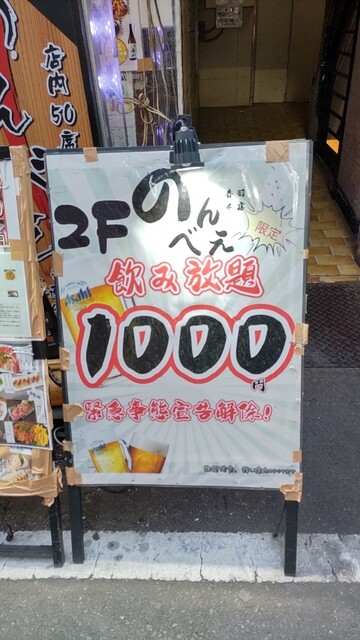 店内50席
2F のんべえ
限定
飲み放題
Asahi
1000円
緊急事態宣言解除!